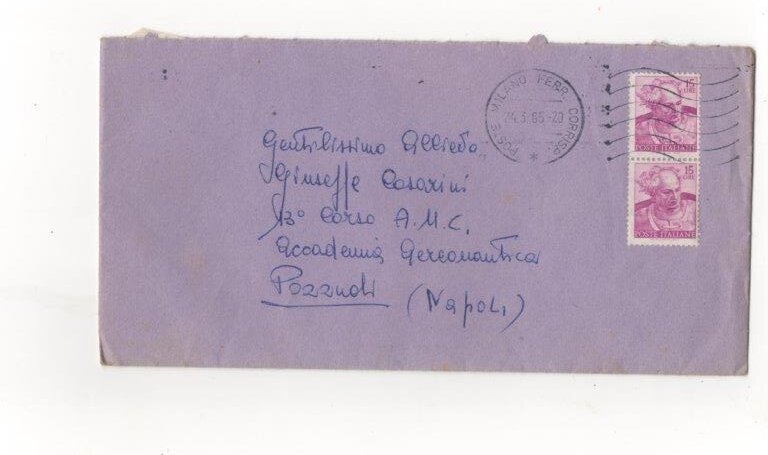 POSTE MILANO FERR. CORRISP.
24.3.65-20
*
15
LIRE
POSTE ITALIANE
15
LIRE
POSTE ITALIANE
Gentilissimo Allievo
Giuseppe Casarini
3° Corso A.M.C.
Accademia Aereonautica
Pozzuoli (Napoli)